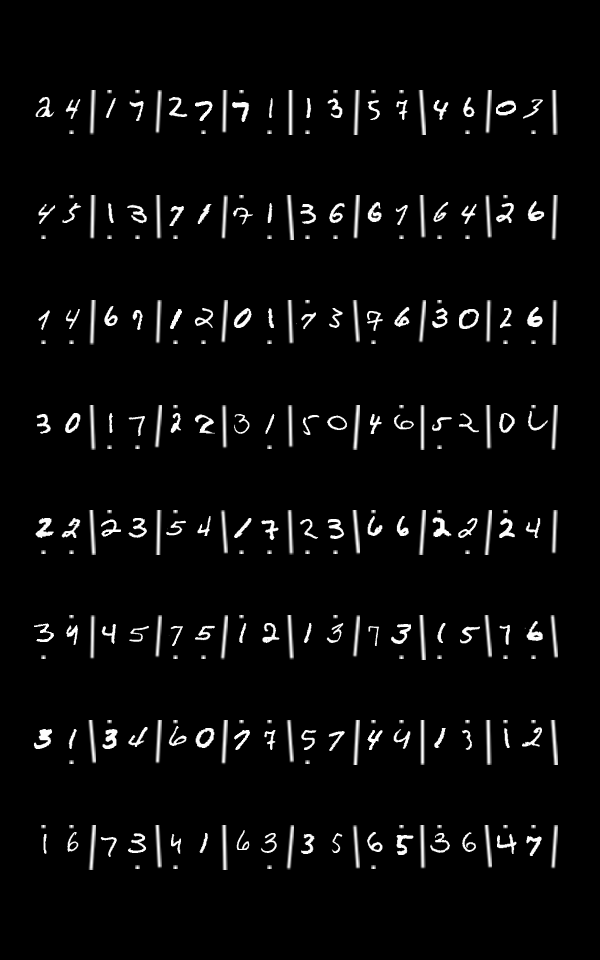 2 4 | 1 7 | 2 7 | 7 1 | 1 3 | 5 7 | 4 6 | 0 3 |
4 5 | 1 3 | 7 1 | 7 1 | 3 6 | 6 7 | 6 4 | 2 6 |
1 4 | 6 7 | 1 2 | 0 1 | 7 3 | 7 6 | 3 0 | 2 6 |
3 0 | 1 7 | 2 2 | 3 1 | 5 0 | 4 6 | 5 2 | 0 6 |
2 2 | 2 3 | 5 4 | 1 7 | 2 3 | 6 6 | 2 2 | 2 4 |
3 4 | 4 5 | 7 5 | 1 2 | 1 3 | 7 3 | 1 5 | 7 6 |
3 1 | 3 4 | 6 0 | 7 7 | 5 7 | 4 4 | 1 3 | 1 2 |
1 6 | 7 3 | 4 1 | 6 3 | 3 5 | 6 5 | 3 6 | 4 7 |